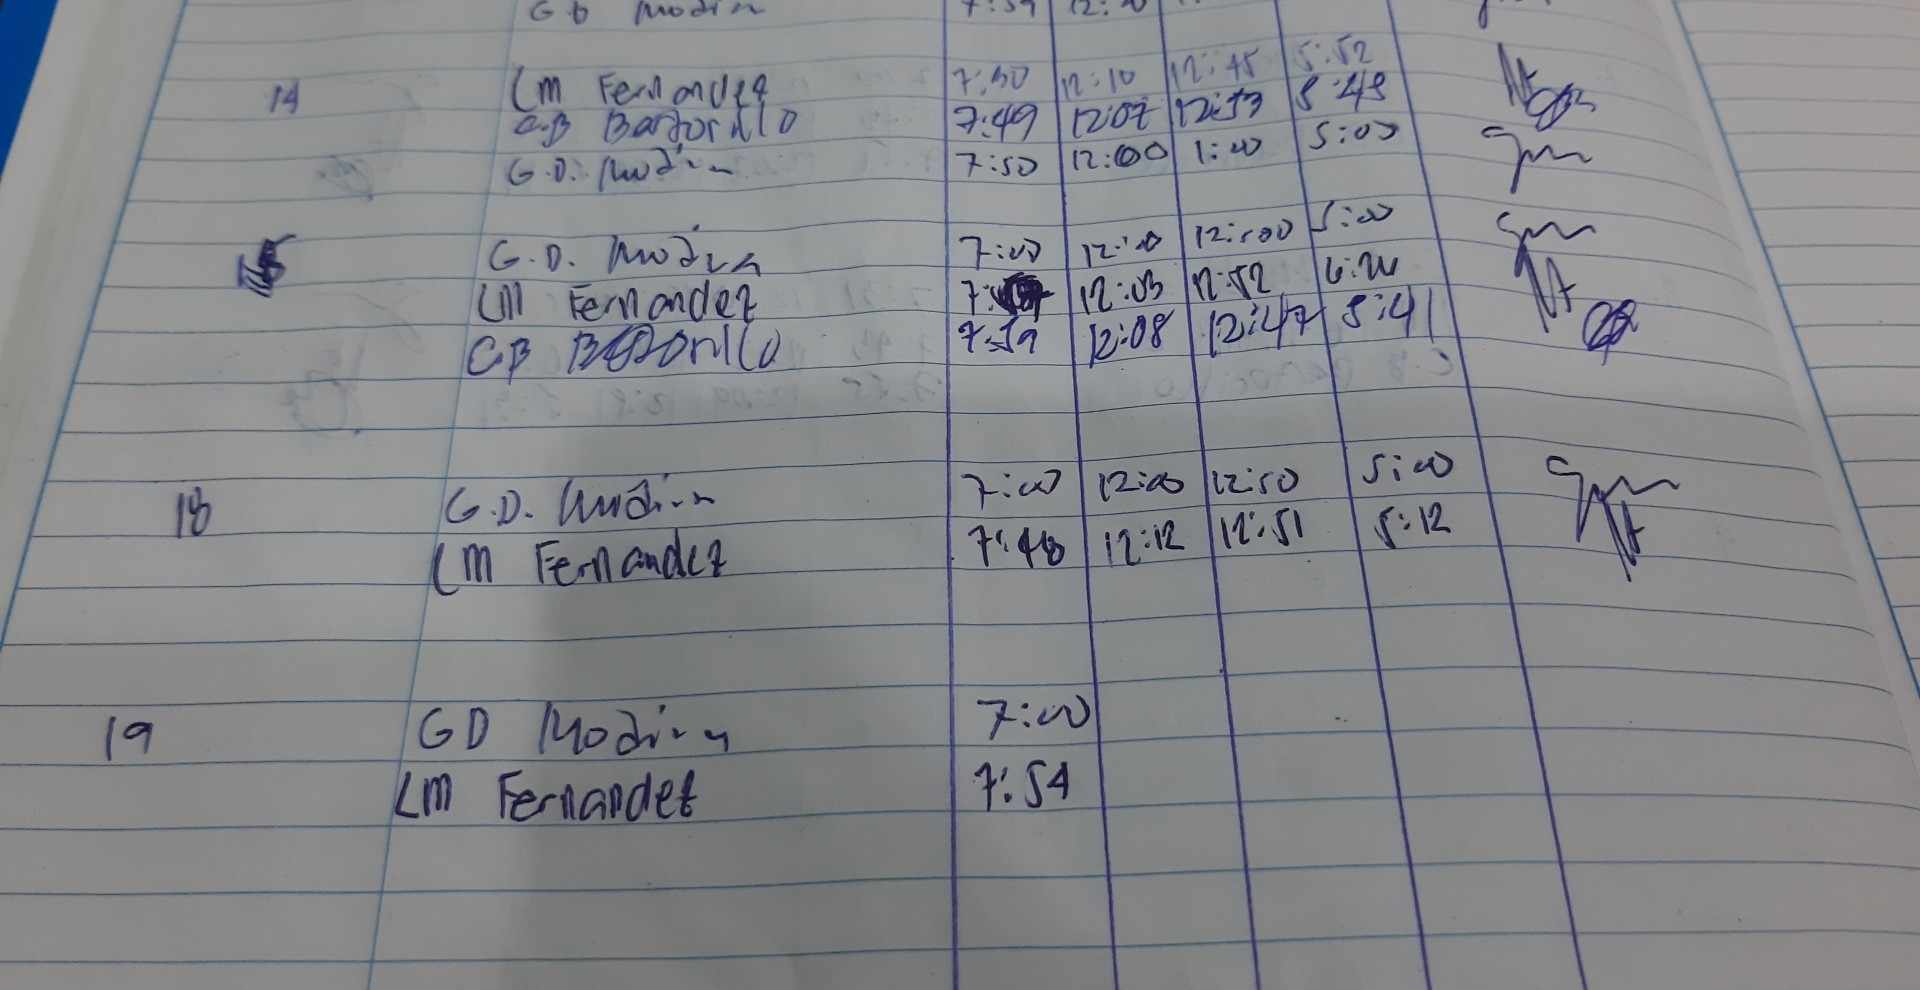 GD Modin 7:59 12:00
14 LM Fernandez 7:50 12:10 12:45 5:52
C.B Bartorillo 7:49 12:07 12:53 5:48
G.D. Modin 7:50 12:00 1:00 5:00
15 G.D. Modina 7:00 12:00 12:00 5:00
LM Fernandez 12:03 12:52
CB 7:59 12:08 12:47 5:41
18 G.D. Modin 7:00 12:00 12:50 5:00
LM Fernandez 7:48 12:12 12:51 5:12
19 GD Modina 7:00
LM Fernandez 7:54